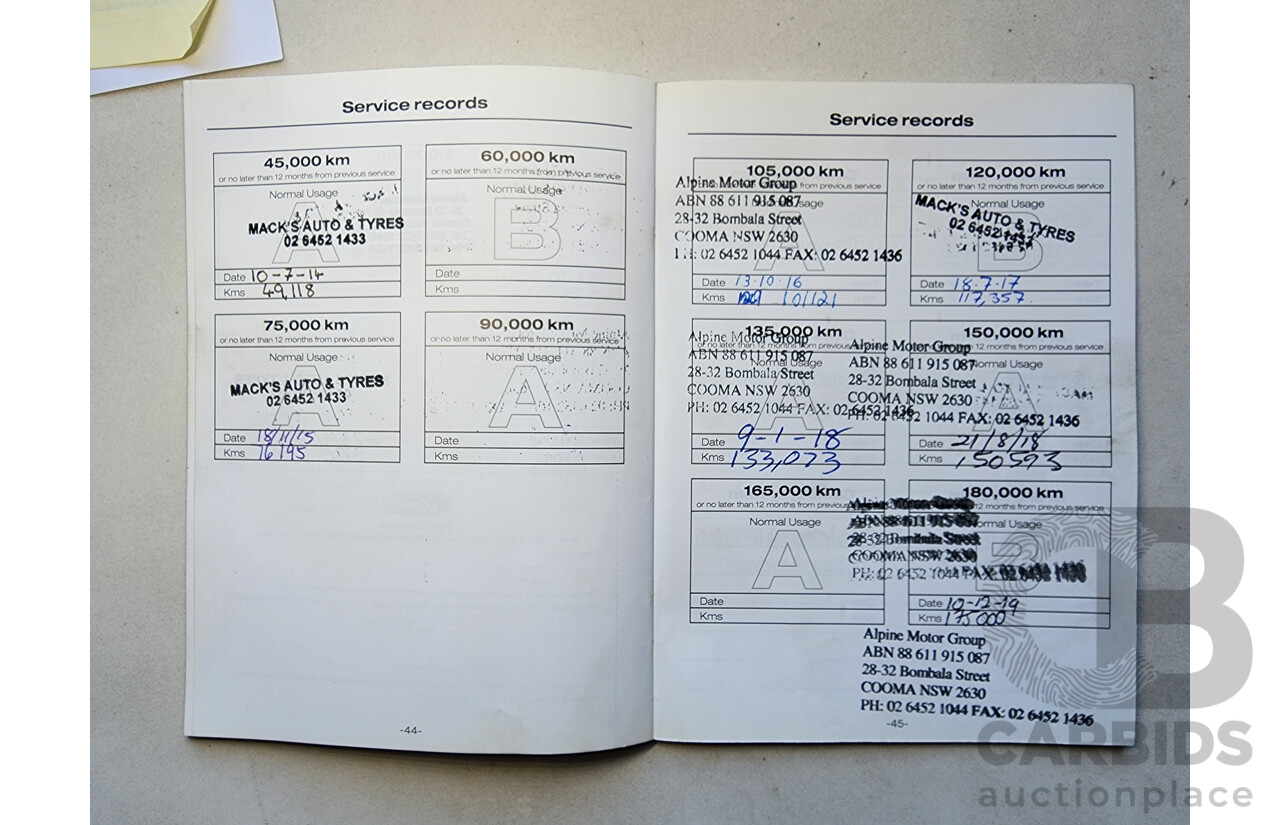 Service records
45,000 km
or no later than 12 months from previous service
Normal Usage
A
MACK'S AUTO & TYRES
02 6452 1433
Date 10-7-14
Kms 49,118
60,000 km
or no later than 12 months from previous service
Normal Usage
B
Date
Kms
75,000 km
or no later than 12 months from previous service
Normal Usage
A
MACK'S AUTO & TYRES
02 6452 1433
Date 18/11/15
Kms
90,000 km
or no later than 12 months from previous service
Normal Usage
A
Date
Kms
-44-
Service records
105,000 km
from previous service
Alpine Motor Group
ABN 88 611 915 087
28-32 Bombala Street
COOMA NSW 2630
PH: 02 6452 1044 FAX: 02 6452 1436
A
Date 13.10.16
Kms 101121
120,000 km
or no later than 12 months from previous service
Normal Usage
B
MACK'S AUTO & TYRES
02 6452 1433
Date 18.7.17
Kms 117,357
135,000 km
or no later than 12 months from previous
Normal Usage
Alpine Motor Group
ABN 88 611 915 087
28-32 Bombala Street
COOMA NSW 2630
PH: 02 6452 1044 FAX: 02 6452 1436
A
Date 9-1-18
Kms 133,073
150,000 km
12 months from previous service
Normal Usage
Alpine Motor Group
ABN 88 611 915 087
28-32 Bombala Street
COOMA NSW 2630
PH: 02 6452 1044 FAX: 02 6452 1436
A
Date 21/8/18
Kms 150593
165,000 km
or no later than 12 months from previous
Normal Usage
A
Date
Kms
180,000 km
12 months from previous service
Normal Usage
Alpine Motor Group
ABN 88 611 915 087
28-32 Bombala Street
COOMA NSW 2630
PH: 02 6452 1044 FAX: 02 6452 1436
B
Date 10-12-19
Kms 175000
Alpine Motor Group
ABN 88 611 915 087
28-32 Bombala Street
COOMA NSW 2630
PH: 02 6452 1044 FAX: 02 6452 1436
-45-
B
CARBIDS
auctionplace